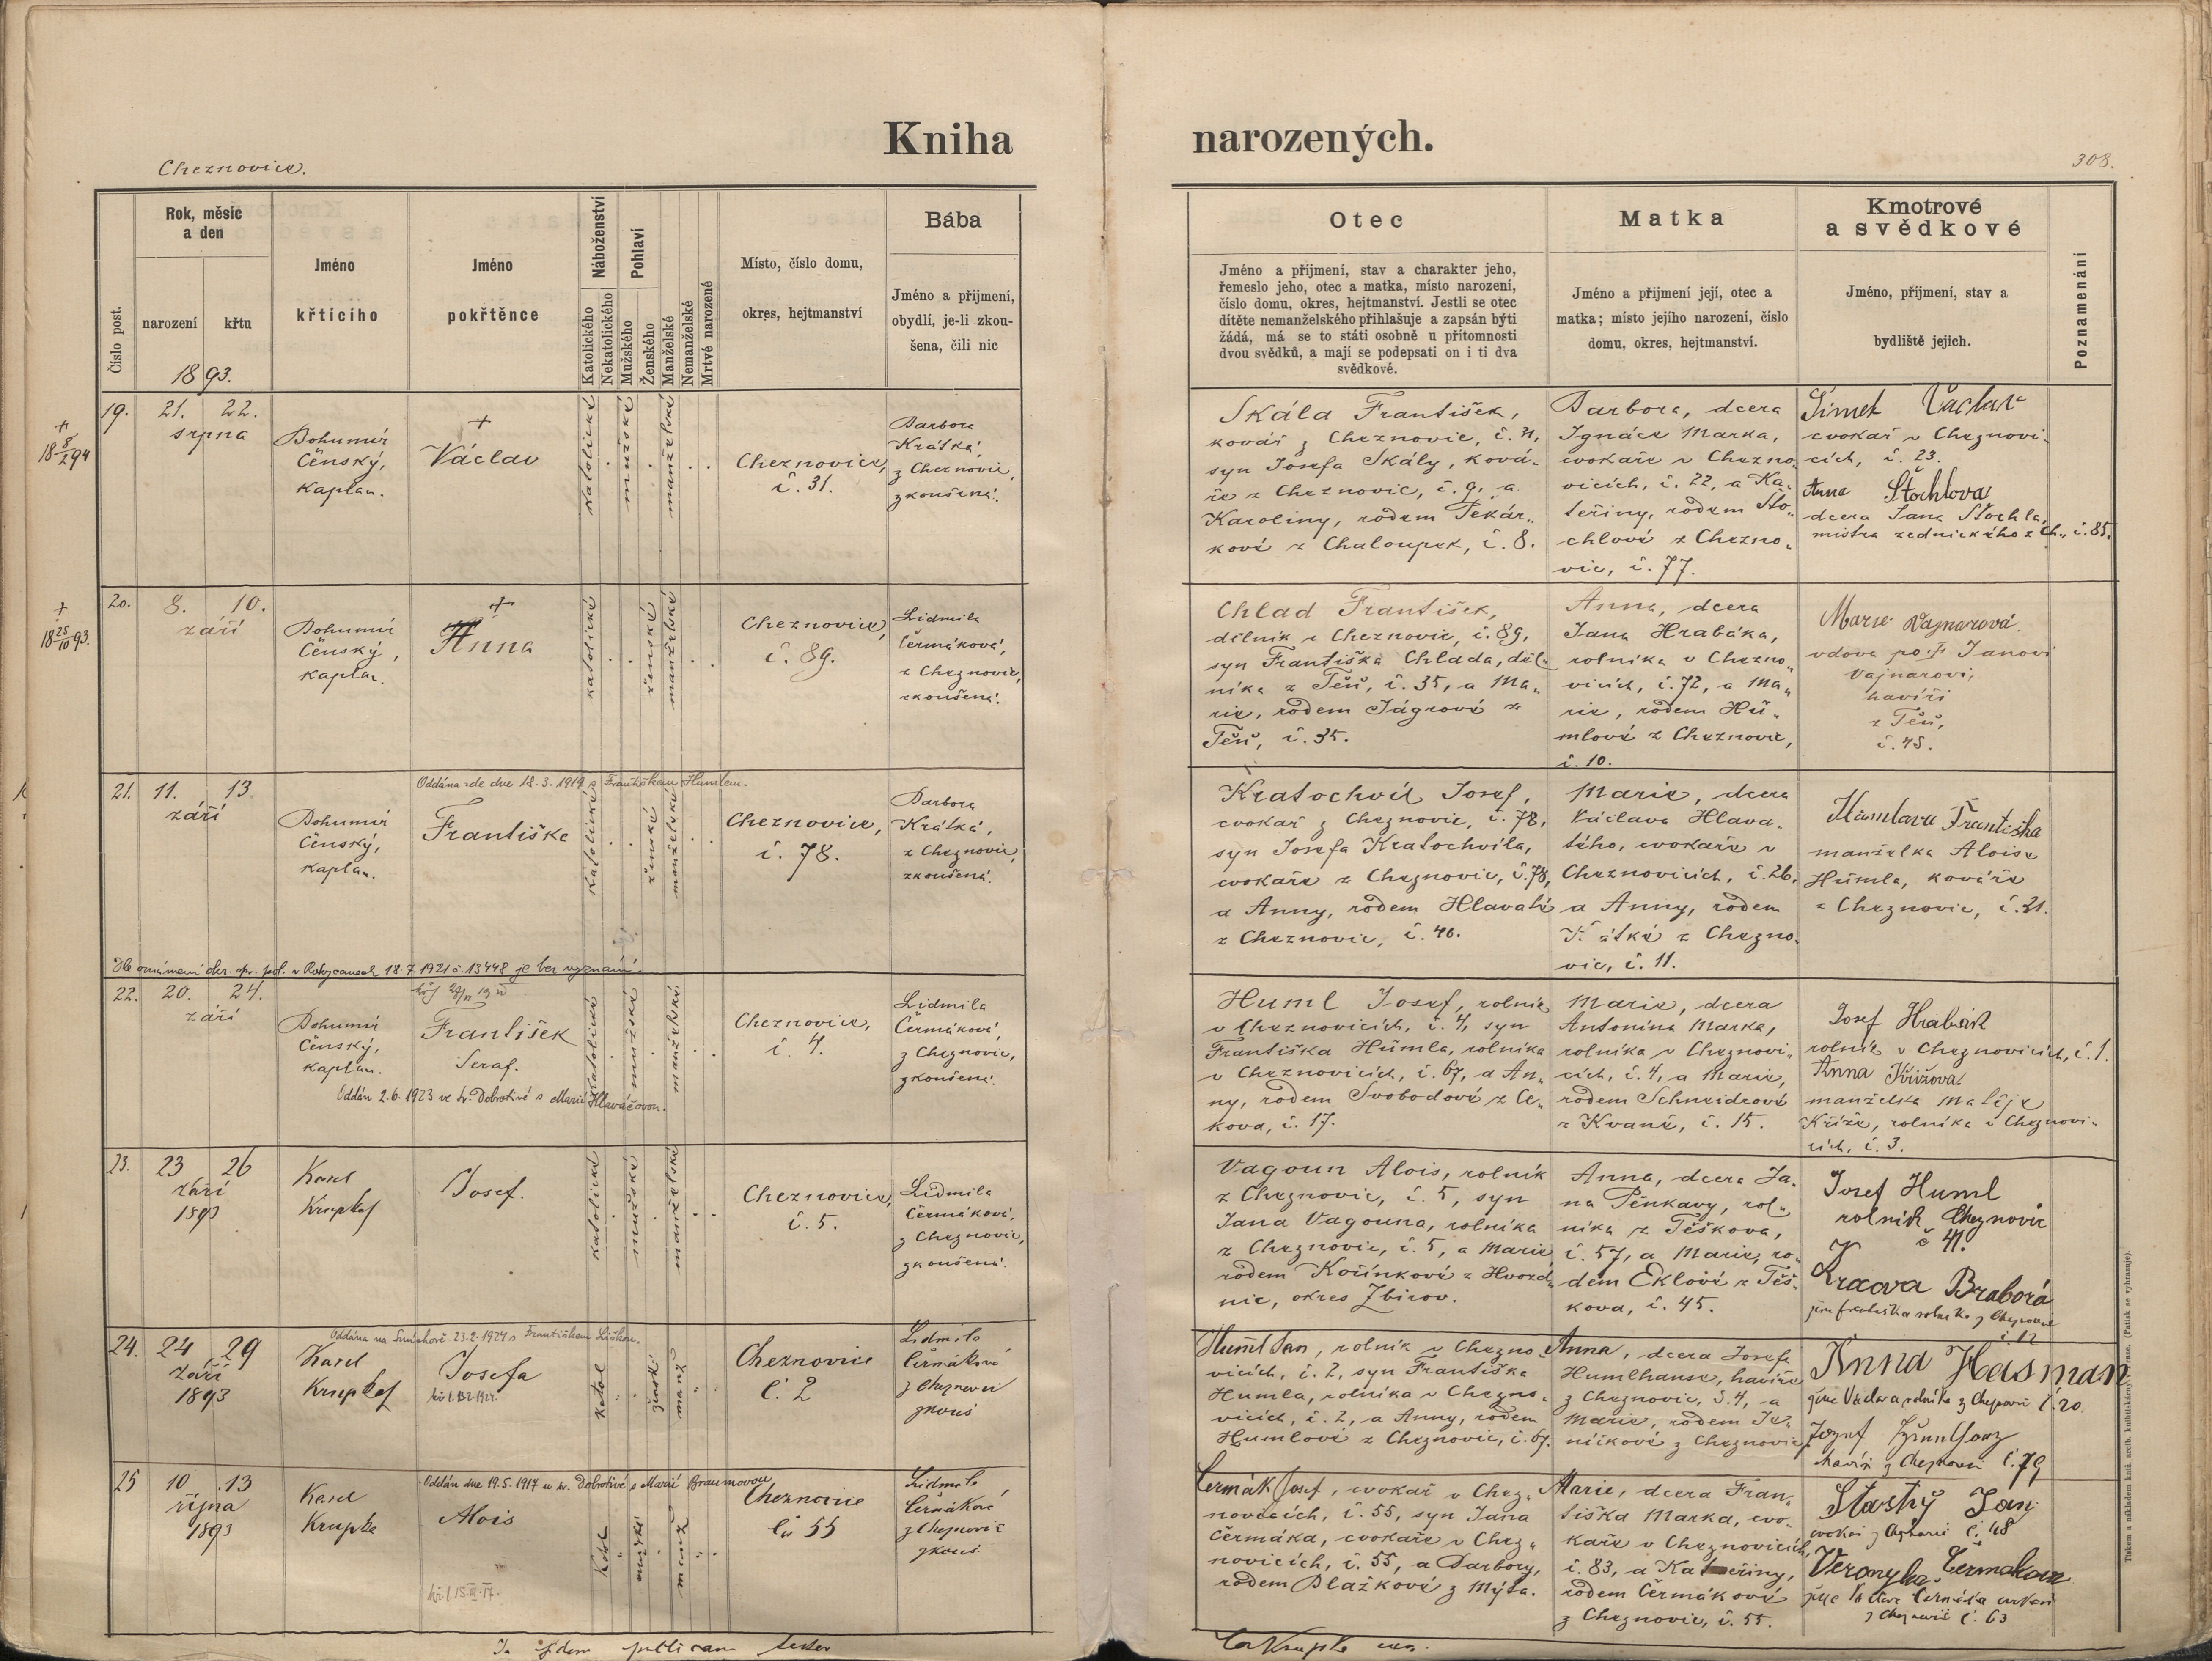 Kniha
narozených.
Cheznovice.
303.
Číslo post.
Rok, měsíc
a den
narození
křtu
1893.
Jméno
křticího
Jméno
pokřtěnce
Náboženství
Katolického
Nekatolického
Pohlaví
Mužského
Ženského
Manželské
Nemanželské
Mrtvé narozené
Místo, číslo domu,
okres, hejtmanství
Bába
Jméno a přijmení,
obydlí, je-li zkou-
šena, čili nic
Otec
Jméno a příjmení, stav a charakter jeho,
řemeslo jeho, otec a matka, místo narození,
číslo domu, okres, hejtmanství. Jestli se otec
dítěte nemanželského přihlašuje a zapsán býti
žádá, má se to státi osobně u přítomnosti
dvou svědků, a mají se podepsati on i ti dva
svědkové.
Matka
Jméno a přijmení její, otec a
matka; místo jejího narození, číslo
domu, okres, hejtmanství.
Kmotrové
a svědkové
Jméno, příjmení, stav a
bydliště jejich.
Poznamenání
19.
21. 22.
srpna
Bohumír
Čenský,
Kaplan.
+
Václav
katolické
mužské
manželské
Cheznovice,
č. 31.
Barbora
Krátká,
z Cheznovic,
zkoušená.
Skála František,
kovář z Cheznovic, č. 31,
syn Josefa Skály, ková-
ře z Cheznovic, č. 9, a
Karoliny, rodem Pekár-
kové z Chaloupek, č. 8.
Barbora, dcera
Ignáce Marka,
cvokaře v Chezno-
vicích, č. 22, a Ka-
teřiny, rodem Što-
chlové z Chezno-
vic, č. 77.
Šimet Václav
cvokař v Cheznovi-
cích, č. 23.
Anna Štochlova
dcera Jana Štochla,
mistra zednického z Ch., č. 85.
20.
8. 10.
září
Bohumír
Čenský,
Kaplan.
+
Anna
katolické
ženské
manželské
Cheznovice,
č. 89.
Lidmila
Čermáková,
z Cheznovic,
zkoušená.
Chlad František,
dělník z Cheznovic, č. 89,
syn Františka Chlada, děl-
níka z Těň, č. 35, a Ma-
rie, rodem Jágrové z
Těň, č. 35.
Anna, dcera
Jana Hrabáka,
rolníka v Chezno-
vicích, č. 72, a Ma-
rie, rodem Hů-
mlové z Cheznovic,
č. 10.
Marie Vajnarová
vdova po † Janovi
Vajnarovi,
havíři
z Těň,
č. 45.
21.
11. 13.
září
Bohumír
Čenský,
Kaplan.
Oddána zde dne 18.3.1919 s Františkem Humlem.
Františka
katolické
ženské
manželské
Cheznovice,
č. 78.
Barbora
Krátká,
z Cheznovic,
zkoušená.
Kratochvíl Josef,
cvokař z Cheznovic, č. 78,
syn Josefa Kratochvíla,
cvokaře z Cheznovic, č. 78,
a Anny, rodem Hlavaté
z Cheznovic, č. 40.
Marie, dcera
Václava Hlava-
tého, cvokaře v
Cheznovicích, č. 26,
a Anny, rodem
Krátké z Chezno-
vic, č. 11.
Humlava Františka
manželka Aloise
Húmla, kováře
z Cheznovic, č. 31.
Dle oznámení okr. spr. pol. v Rokycanech 18.7.1921 č. 13448 je bez vyznání.
22.
20. 24.
září
Bohumír
Čenský,
Kaplan.
František
Seraf.
Oddán 2.6.1923 ve sv. Dobrotivé s Marií Hlaváčovou.
katolické
mužské
manželské
Cheznovice,
č. 4.
Lidmila
Čermáková,
z Cheznovic,
zkoušená.
Huml Josef, rolník
v Cheznovicích, č. 4, syn
Františka Húmla, rolníka
v Cheznovicích, č. 67, a An-
ny, rodem Svobodové z Ce-
kova, č. 17.
Marie, dcera
Antonína Marka,
rolníka v Cheznovi-
cích, č. 4, a Marie,
rodem Schneidrové
z Kvaně, č. 15.
Josef Hrabák
rolník v Cheznovicích, č. 1.
Anna Křižova
manželka Matěje
Kříže, rolníka v Cheznovi-
cích, č. 3.
23.
23 26
září
1893
Karel
Krupka
Josef.
katolické
mužské
manželské
Cheznovice,
č. 5.
Lidmila
Čermáková,
z Cheznovic,
zkoušená.
Vagoun Alois, rolník
z Cheznovic, č. 5, syn
Jana Vagouna, rolníka
z Cheznovic, č. 5, a Marie
rodem Kořínkové z Hvozd-
nic, okres Zbirov.
Anna, dcera Ja-
na Pěnkavy, rol-
níka z Těškova,
č. 57, a Marie, ro-
dem Eklové z Těš-
kova, č. 45.
Josef Huml
rolník Cheznovic
č 41.
Braborá
24.
24 29
září
1893
Karel
Krupka
Oddána na Smíchově 23.2.1924 s Františkem Liškou.
Josefa
katol
ženské
manž
Cheznovice
č. 2
Lidmila
Čermáková
z Cheznovic
zkouš
Huml Jan, rolník v Chezno-
vicích, č. 2, syn Františka
Humla, rolníka v Chezno-
vicích, č. 2, a Anny, rodem
Humlové z Cheznovic, č. 67.
Anna, dcera Josefa
Humlhanse, havíře
z Cheznovic, č. 4, a
Marie, rodem
z Cheznovic
Anna Hasman
žena Václava rolníka z Cheznovic č. 20
Jozef
havíř z Cheznovic č. 79
25
10 13
října
1893
Karel
Krupka
Oddán dne 19.5.1917 u sv. Dobrotivé s Marií Braunovou
Alois
Katol
mužské
manž
Cheznovice
č. 55
Lidmila
Čermáková
z Cheznovic
zkouš
Čermák Josef, cvokař v Chez-
novicích, č. 55, syn Jana
Čermáka, cvokaře v Chez-
novicích, č. 55, a Barbory,
rodem Blažkové z Mýta.
Marie, dcera Fran-
tiška Marka, cvo-
kaře v Cheznovicích,
č. 83, a Kateřiny,
rodem Čermákové
z Cheznovic, č. 55.
Stastný Jan
cvokař z Cheznovic č. 48
Veronyka Čermakova
žena Václava Čermáka cvokaře
z Cheznovic č. 63